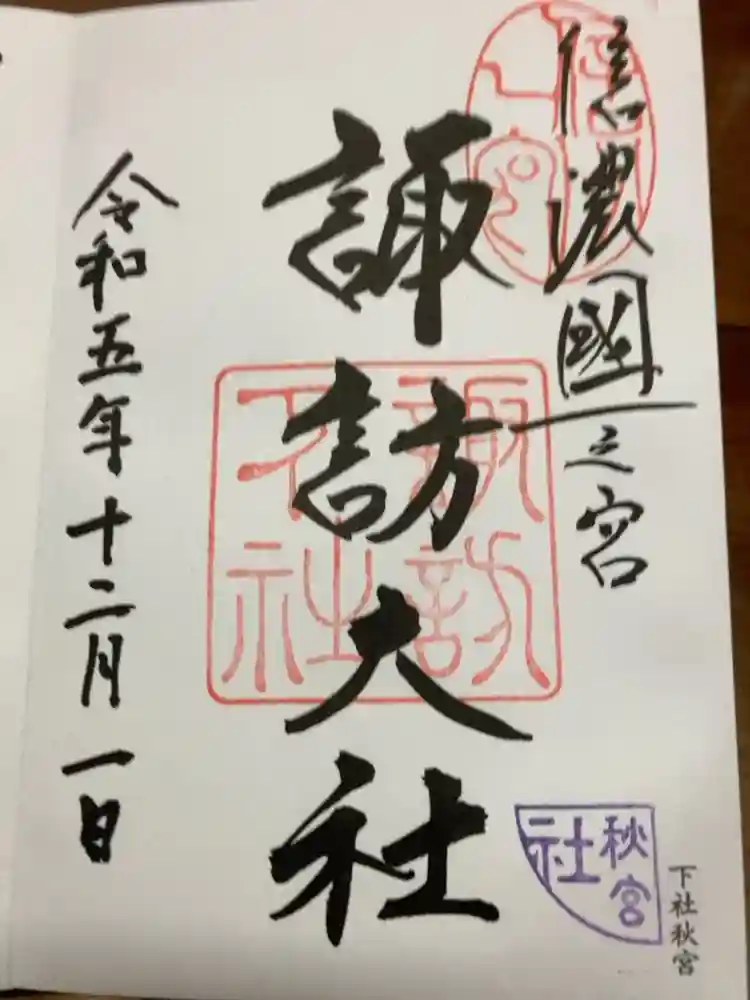 信濃國一之宮
諏訪大社
諏訪
下社
令和五年十二月一日
秋宮
社
下社秋宮